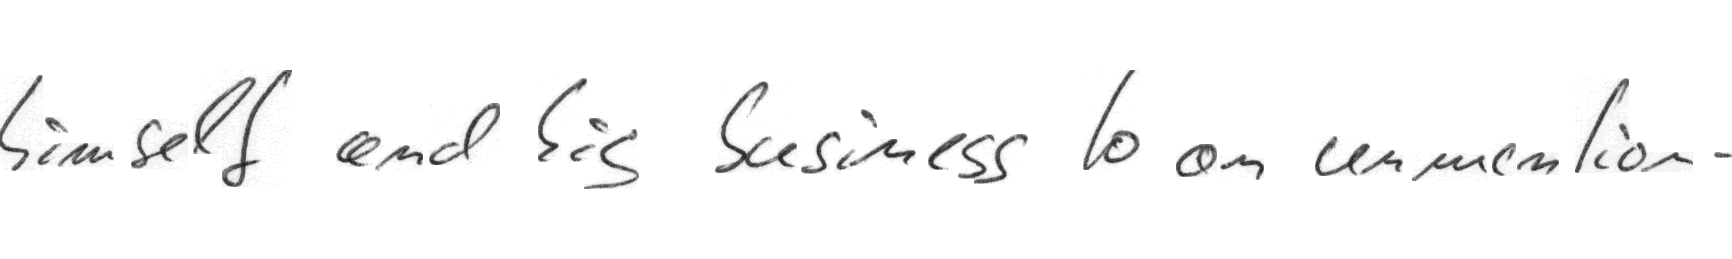 himself and his business to an unmention-